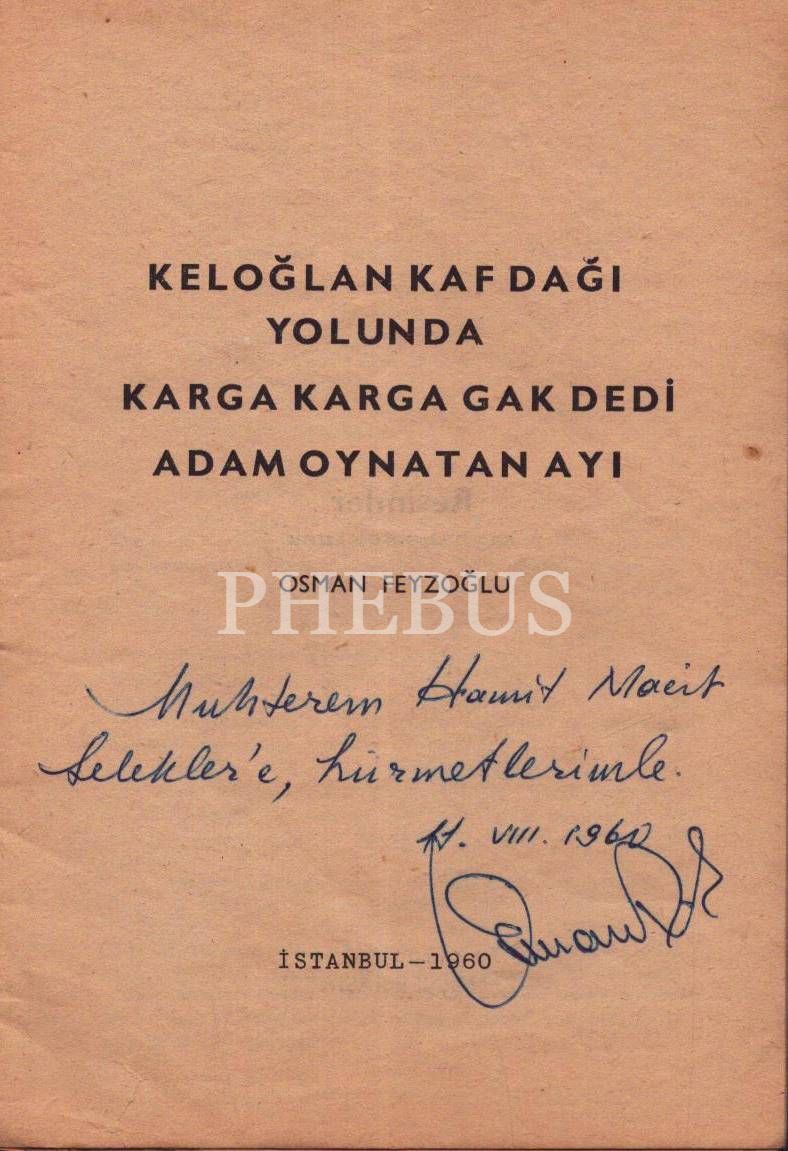 KELOĞLAN KAF DAĞI
YOLUNDA
KARGA KARGA GAK DEDİ
ADAM OYNATAN AYI
OSMAN FEYZOĞLU
PHEBUS
Muhterem Hamit Macit
Selekler'e, hürmetlerimle.
11. VIII. 1960
İSTANBUL—1960